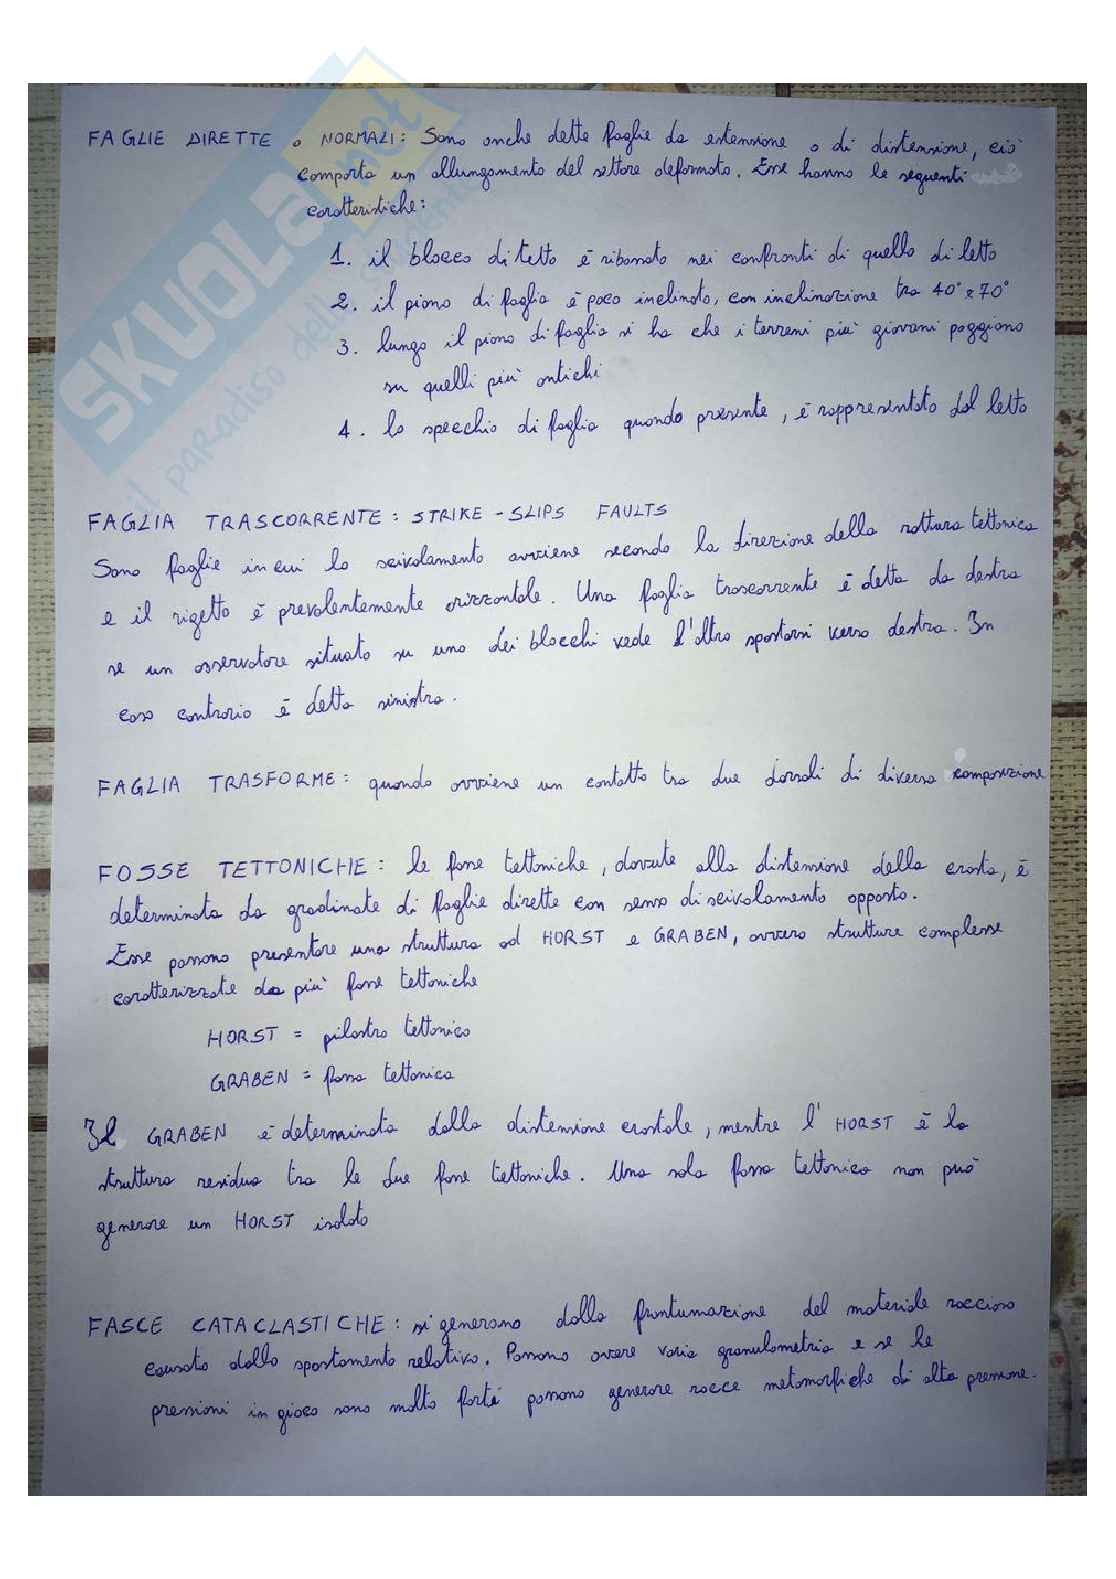 FAGLIE DIRETTE o NORMALI: Sono anche dette faglie da estensione o di distensione, ciò
comporta un allungamento del settore deformato. Esse hanno le seguenti
caratteristiche:
1. il blocco di tetto è ribassato nei confronti di quello di letto
2. il piano di faglia è poco inclinato, con inclinazione tra 40° e 70°
3. lungo il piano di faglia si ha che i terreni più giovani poggiano
su quelli più antichi
4. lo specchio di faglia quando presente, è rappresentato dal letto
FAGLIA TRASCORRENTE: STRIKE-SLIPS FAULTS
Sono faglie in cui lo scivolamento avviene secondo la direzione della rottura tettonica
e il rigetto è prevalentemente orizzontale. Una faglia trascorrente è detta da destra
se un osservatore situato su uno dei blocchi vede l'altro spostarsi verso destra. In
caso contrario è detta sinistra.
FAGLIA TRASFORME: quando avviene un contatto tra due dorsali di diversa composizione
FOSSE TETTONICHE: le fosse tettoniche, dovute alla distensione della crosta, è
determinata da gradinate di faglie dirette con senso di scivolamento opposto.
Esse possono presentare una struttura ad HORST e GRABEN, ovvero strutture complesse
caratterizzate da più fosse tettoniche
HORST = pilastro tettonico
GRABEN = fossa tettonica
Il GRABEN è determinata dalla distensione crostale, mentre l'HORST è la
struttura residua tra le due fosse tettoniche. Una sola fossa tettonica non può
generare un HORST isolato
FASCE CATACLASTICHE: si generano dalla frantumazione del materiale roccioso
causato dallo spostamento relativo. Possono avere varia granulometria e se le
pressioni in gioco sono molto forti possono generare rocce metamorfiche di alta pressione.
SKUOLA.not
il paradiso degli